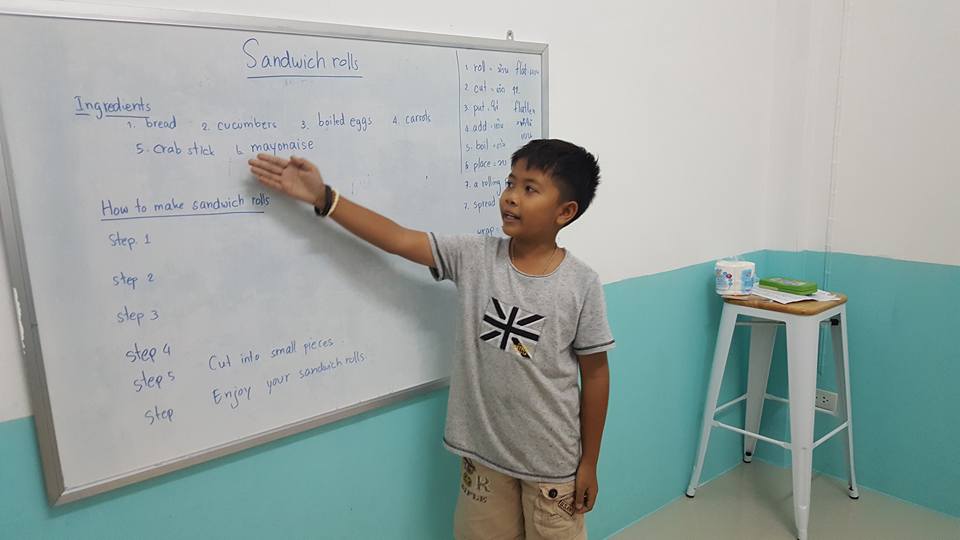 Sandwich rolls
Ingredients
1. bread 2. cucumbers 3. boiled eggs 4. carrots
5. Crab stick 6. mayonaise
How to make sandwich rolls
Step 1
Step 2
Step 3
Step 4 Cut into small pieces.
Step 5 Enjoy your sandwich rolls.
Step
1. roll = ม้วน
2. cut = ตัด
3. put = ใส่
4. add = เพิ่ม
5. boil = ต้ม
6. place =
7. a rolling
7. spread
wrap =